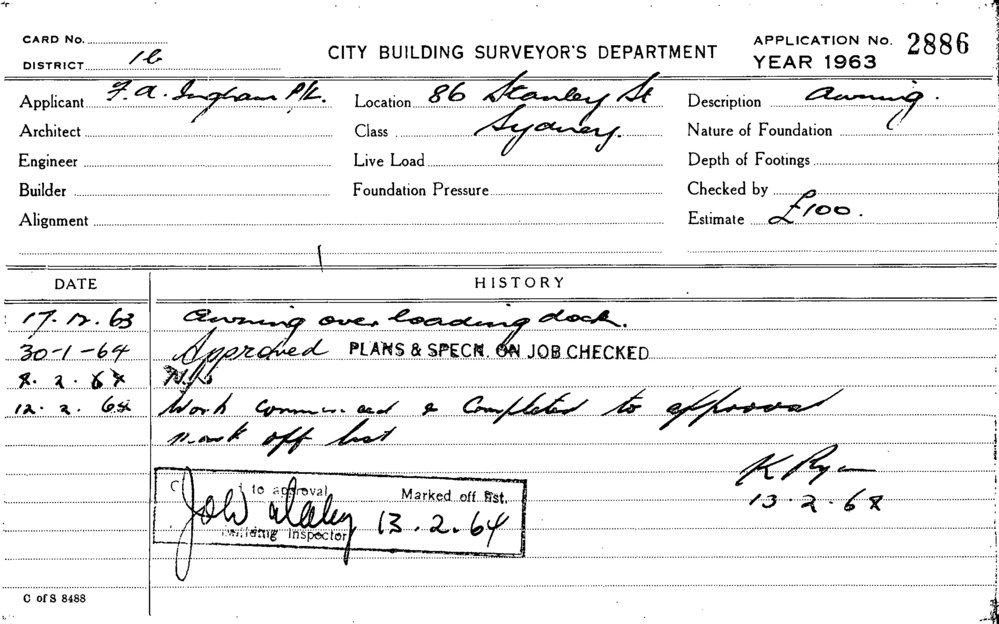 CARD No.
DISTRICT 16
CITY BUILDING SURVEYOR'S DEPARTMENT
APPLICATION No. 2886
YEAR 1963
Applicant F. A. Ingham P/L.
Location 86 Stanley St
Description Awning.
Architect
Class Sydney.
Nature of Foundation
Engineer
Live Load
Depth of Footings
Builder
Foundation Pressure
Checked by
Alignment
Estimate £100.
DATE
HISTORY
17.12.63 Awning over loading dock.
30-1-64 Approved PLANS & SPECN. ON JOB CHECKED
4.2.64
12.2.64 Work commenced & Completed to approval
mark off list
K Ryan
13.2.64
C to approval
Marked off list.
13.2.64
Building Inspector
C of S 8488